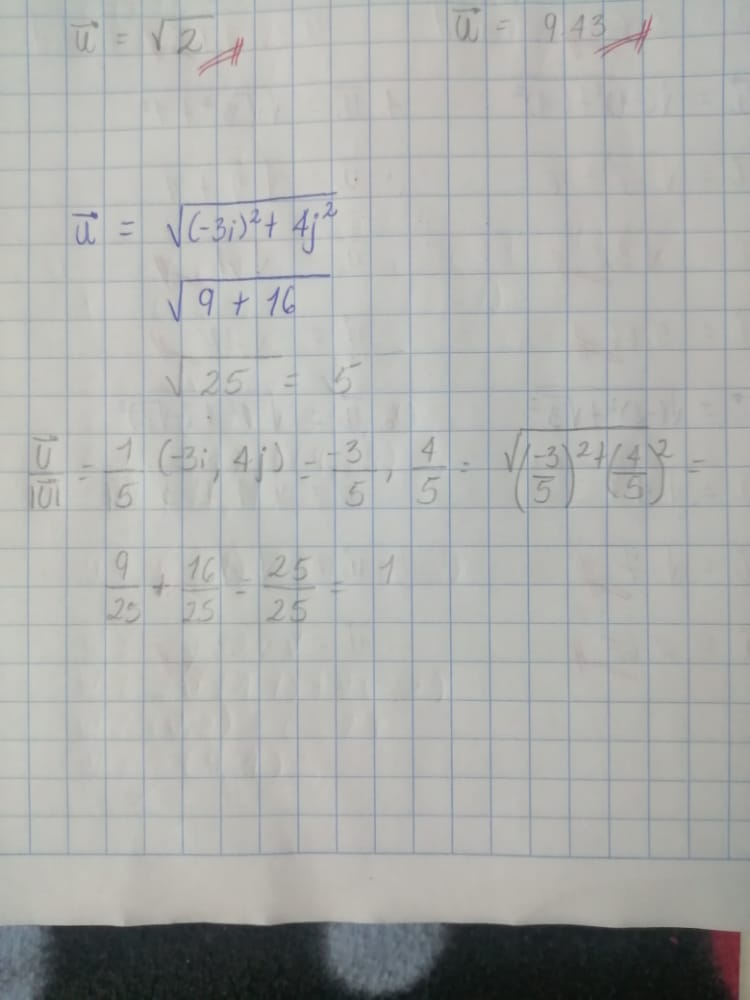 u⃗ = √2 u⃗ = 9.43
u⃗ = √((-3i)² + 4j²)
√(9 + 16)
√25 = 5
U⃗/|U⃗| = 1/5 (-3i, 4j) = -3/5, 4/5 = √((-3/5)² + (4/5)²) =
9/25 + 16/25 = 25/25 = 1